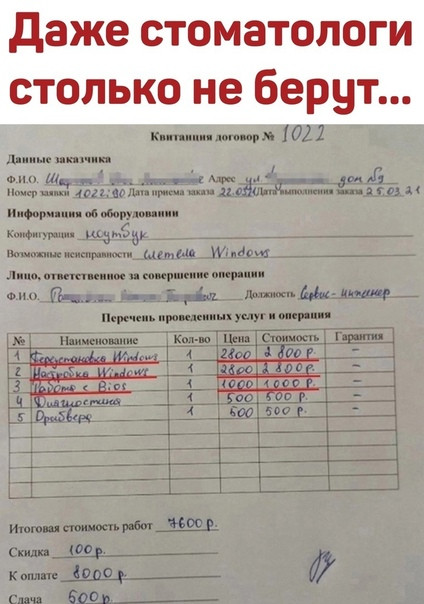 Даже стоматологи
столько не берут...
Квитанция договор № 1022
Данные заказчика
Ф.И.О. Адрес ул. дом 59
Номер заявки 1022:90 Дата приема заказа 22.03.21 Дата выполнения заказа 25.03.21
Информация об оборудовании
Конфигурация ноутбук
Возможные неисправности слетела Windows
Лицо, ответственное за совершение операции
Ф.И.О. Должность Сервис-инженер
Перечень проведенных услуг и операция
№ Наименование Кол-во Цена Стоимость Гарантия
1 Переустановка Windows 1 2800 2 800 р. –
2 Настройка Windows 1 2800 2 800 р. –
3 Работа с Bios 1 1000 1 000 р. –
4 Диагностика 1 500 500 р. –
5 Драйвера 1 500 500 р. –
Итоговая стоимость работ 7600 р.
Скидка 100 р.
К оплате 8000 р.
Сдача 500 р.